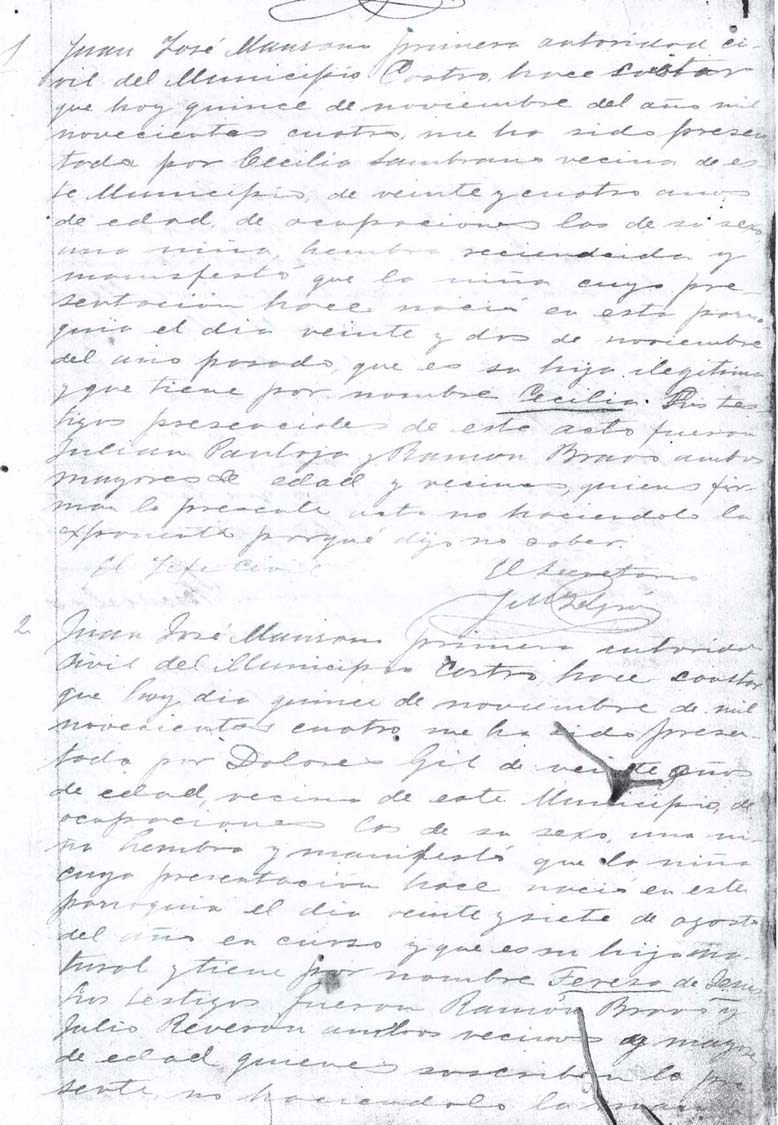 1 Juan José Manzano primera autoridad ci-
vil del Municipio Castro, hace costar
que hoy quince de noviembre del año mil
novecientos cuatro, me ha sido presen
tada por Cecilia Sambrano vecina de es
te Municipio, de veinte y cuatro años
de edad, de ocupaciones las de su sexo
una niña, hembra recien nacida y
manifestó que la niña cuya pre-
sentacion hace nació en esta parro
quia el dia veinte y dos de noviembre
del año pasado, que es su hija ilegitima
y que tiene por nombre Cecilia. Los tes
tigos presenciales de este acto fueron
Julian Pantoja y Ramon Bravo ambos
mayores de edad y vecinos, quienes fir-
man la presente acta no haciendolo la
exponente porqué dijo no saber.
El Jefe Civil El Secretario
2 Juan José Manzano primera autoridad
civil del Municipio Castro hace constar
que hoy dia quince de noviembre de mil
novecientos cuatro me ha sido presen-
tada por Dolores Gil de veinte años
de edad, vecina de este Municipio, de
ocupaciones las de su sexo, una ni-
ña hembra y manifestó que la niña
cuya presentación hace nació en esta
parroquia el dia veinte y siete de agosto
del año en curso y que es su hija na-
tural y tiene por nombre Teresa de Jesus
Los testigos fueron Ramón Bravo y
Julio Reverón ambos vecinos y mayores
de edad quienes suscriben la pre-
sente, no haciendolo la